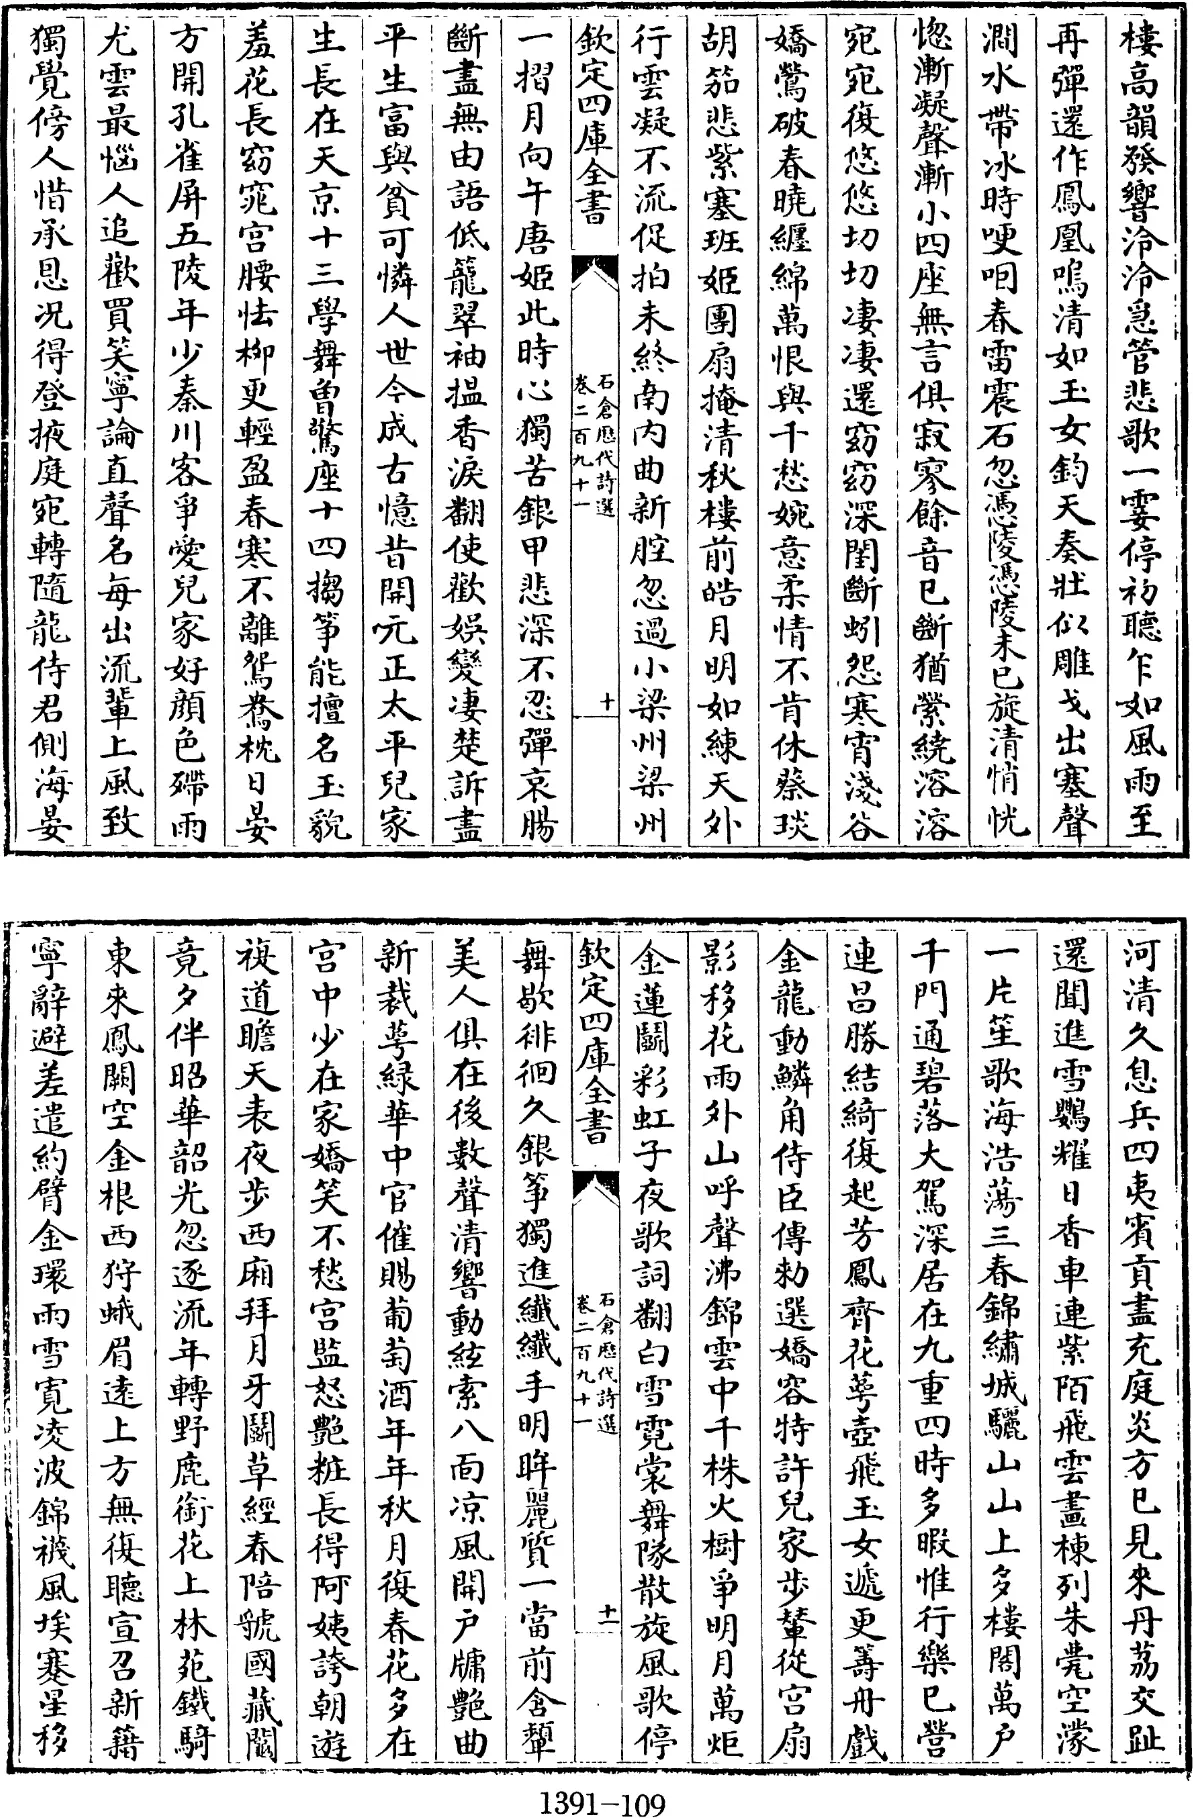 樓高韻發響泠泠急管悲歌一霎停初聽乍如風雨至
再彈還作鳳凰鳴清如玉女鈞天奏壯似雕戈出塞聲
澗水帶冰時哽咽春雷震石忽憑陵憑陵未已旋清悄恍
惚漸凝聲漸小四座無言俱寂寥餘音已斷猶縈繞溶溶
宛宛復悠悠切切凄凄還窈窈深閨斷蚓怨寒宵淺谷
嬌鶯破春曉纏綿萬恨與千愁婉意柔情不肯休蔡琰
胡笳悲紫塞班姬團扇掩清秋樓前皓月明如練天外
行雲凝不流促拍未終南内曲新腔忽過小梁州梁州
欽定四庫全書
石倉歷代詩選
卷二百九十一
十
一摺月向午唐姬此時心獨苦銀甲悲深不忍彈哀腸
斷盡無由語低籠翠袖揾香淚翻使歡娛變凄楚訴盡
平生富與貧可憐人世今成古憶昔開元正太平兒家
生長在天京十三學舞曾驚座十四搊筝能擅名玉貌
羞花長窈窕宫腰怯柳更輕盈春寒不離鴛鴦枕日晏
方開孔雀屏五陵年少秦川客爭愛兒家好顔色殢雨
尤雲最惱人追歡買笑寧論直聲名每出流輩上風致
獨覺傍人惜承恩况得登掖庭宛轉隨龍侍君側海晏
河清久息兵四夷賓貢盡充庭炎方已見來丹荔交趾
還聞進雪鸚耀日香車連紫陌飛雲畫棟列朱甍空濛
一片笙歌海浩蕩三春錦繡城驪山山上多樓閣萬户
千門通碧落大駕深居在九重四時多暇惟行樂已營
連昌勝結綺復起芳鳳齊花萼壺飛玉女遞更籌舟戲
金龍動鱗角侍臣傳勅選嬌容特許兒家步輦從宫扇
影移花雨外山呼聲沸錦雲中千株火樹爭明月萬炬
金蓮鬬彩虹子夜歌詞翻白雪霓裳舞隊散旋風歌停
欽定四庫全書
石倉歷代詩選
卷二百九十一
十一
舞歇徘徊久銀筝獨進纖纖手明眸麗質一當前含顰
美人俱在後數聲清響動絃索八面凉風開户牖艷曲
新裁萼緑華中官催賜葡萄酒年年秋月復春花多在
宫中少在家嬌笑不愁宫監怒艷粧長得阿姨誇朝遊
複道瞻天表夜步西廂拜月牙鬬草經春陪虢國藏鬮
竟夕伴昭華韶光忽逐流年轉野鹿銜花上林苑鐵騎
東來鳳闕空金根西狩蛾眉逺上方無復聽宣召新籍
寧辭避差遣約臂金環雨雪寬凌波錦襪風埃蹇星移
1391-109